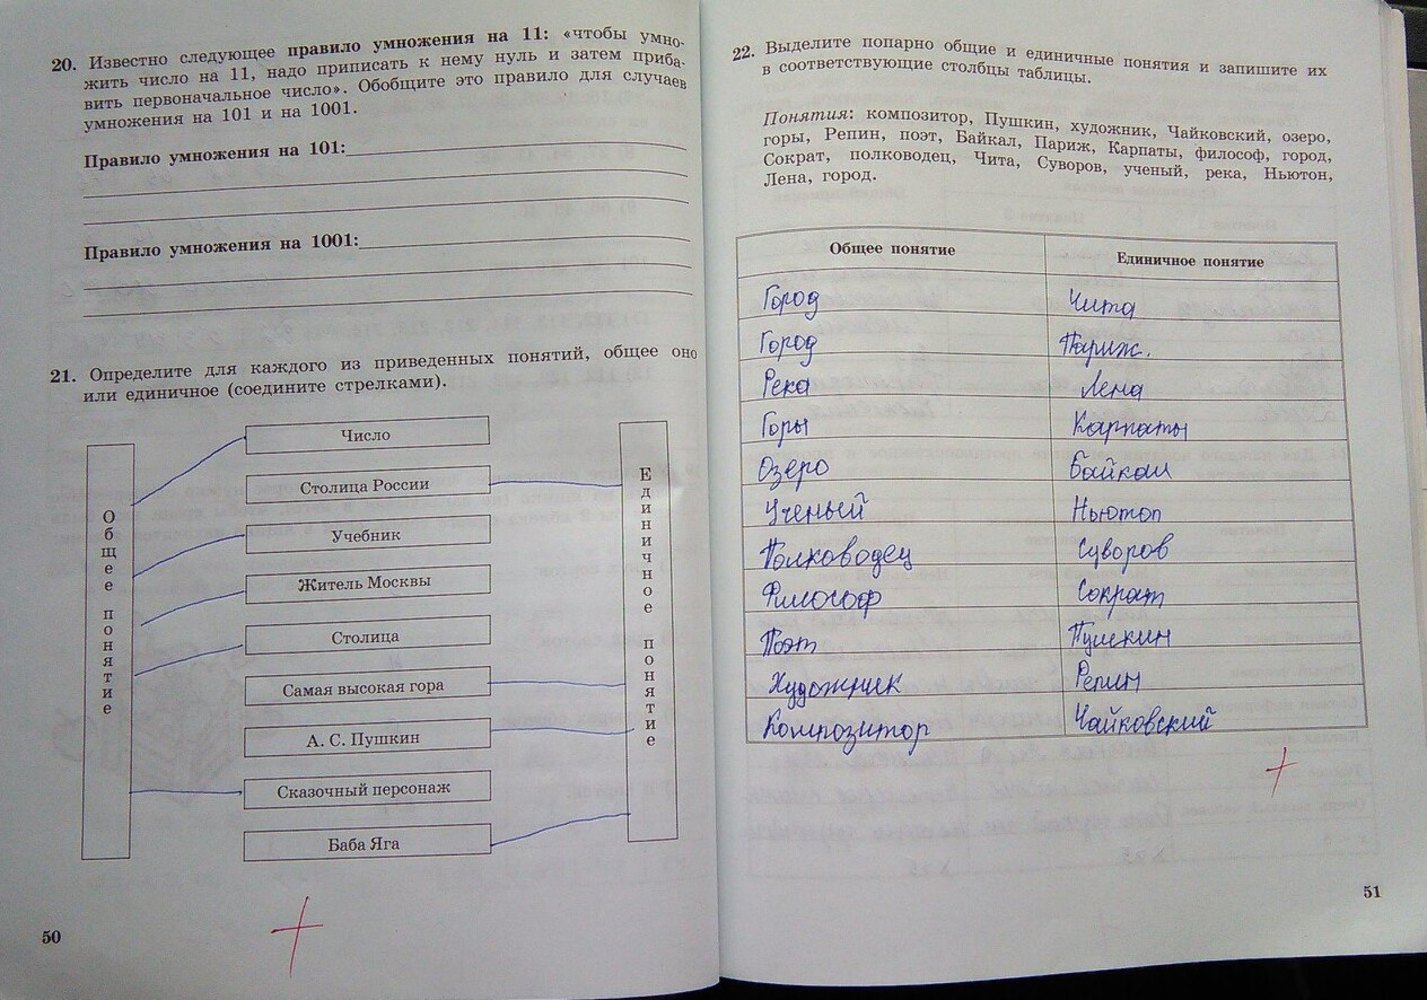 20. Известно следующее правило умножения на 11: «чтобы умно-
жить число на 11, надо приписать к нему нуль и затем приба-
вить первоначальное число». Обобщите это правило для случаев
умножения на 101 и на 1001.
Правило умножения на 101:
Правило умножения на 1001:
21. Определите для каждого из приведенных понятий, общее оно
или единичное (соедините стрелками).
Общее понятие
Число
Столица России
Учебник
Житель Москвы
Столица
Самая высокая гора
А. С. Пушкин
Сказочный персонаж
Баба Яга
Единичное понятие
50
22. Выделите попарно общие и единичные понятия и запишите их
в соответствующие столбцы таблицы.
Понятия: композитор, Пушкин, художник, Чайковский, озеро,
горы, Репин, поэт, Байкал, Париж, Карпаты, философ, город,
Сократ, полководец, Чита, Суворов, ученый, река, Ньютон,
Лена, город.
Общее понятие Единичное понятие
Город Чита
Город Париж.
Река Лена
Горы Карпаты
Озеро Байкал
Ученый Ньютон
Полководец Суворов
Философ Сократ
Поэт Пушкин
Художник Репин
Композитор Чайковский
51